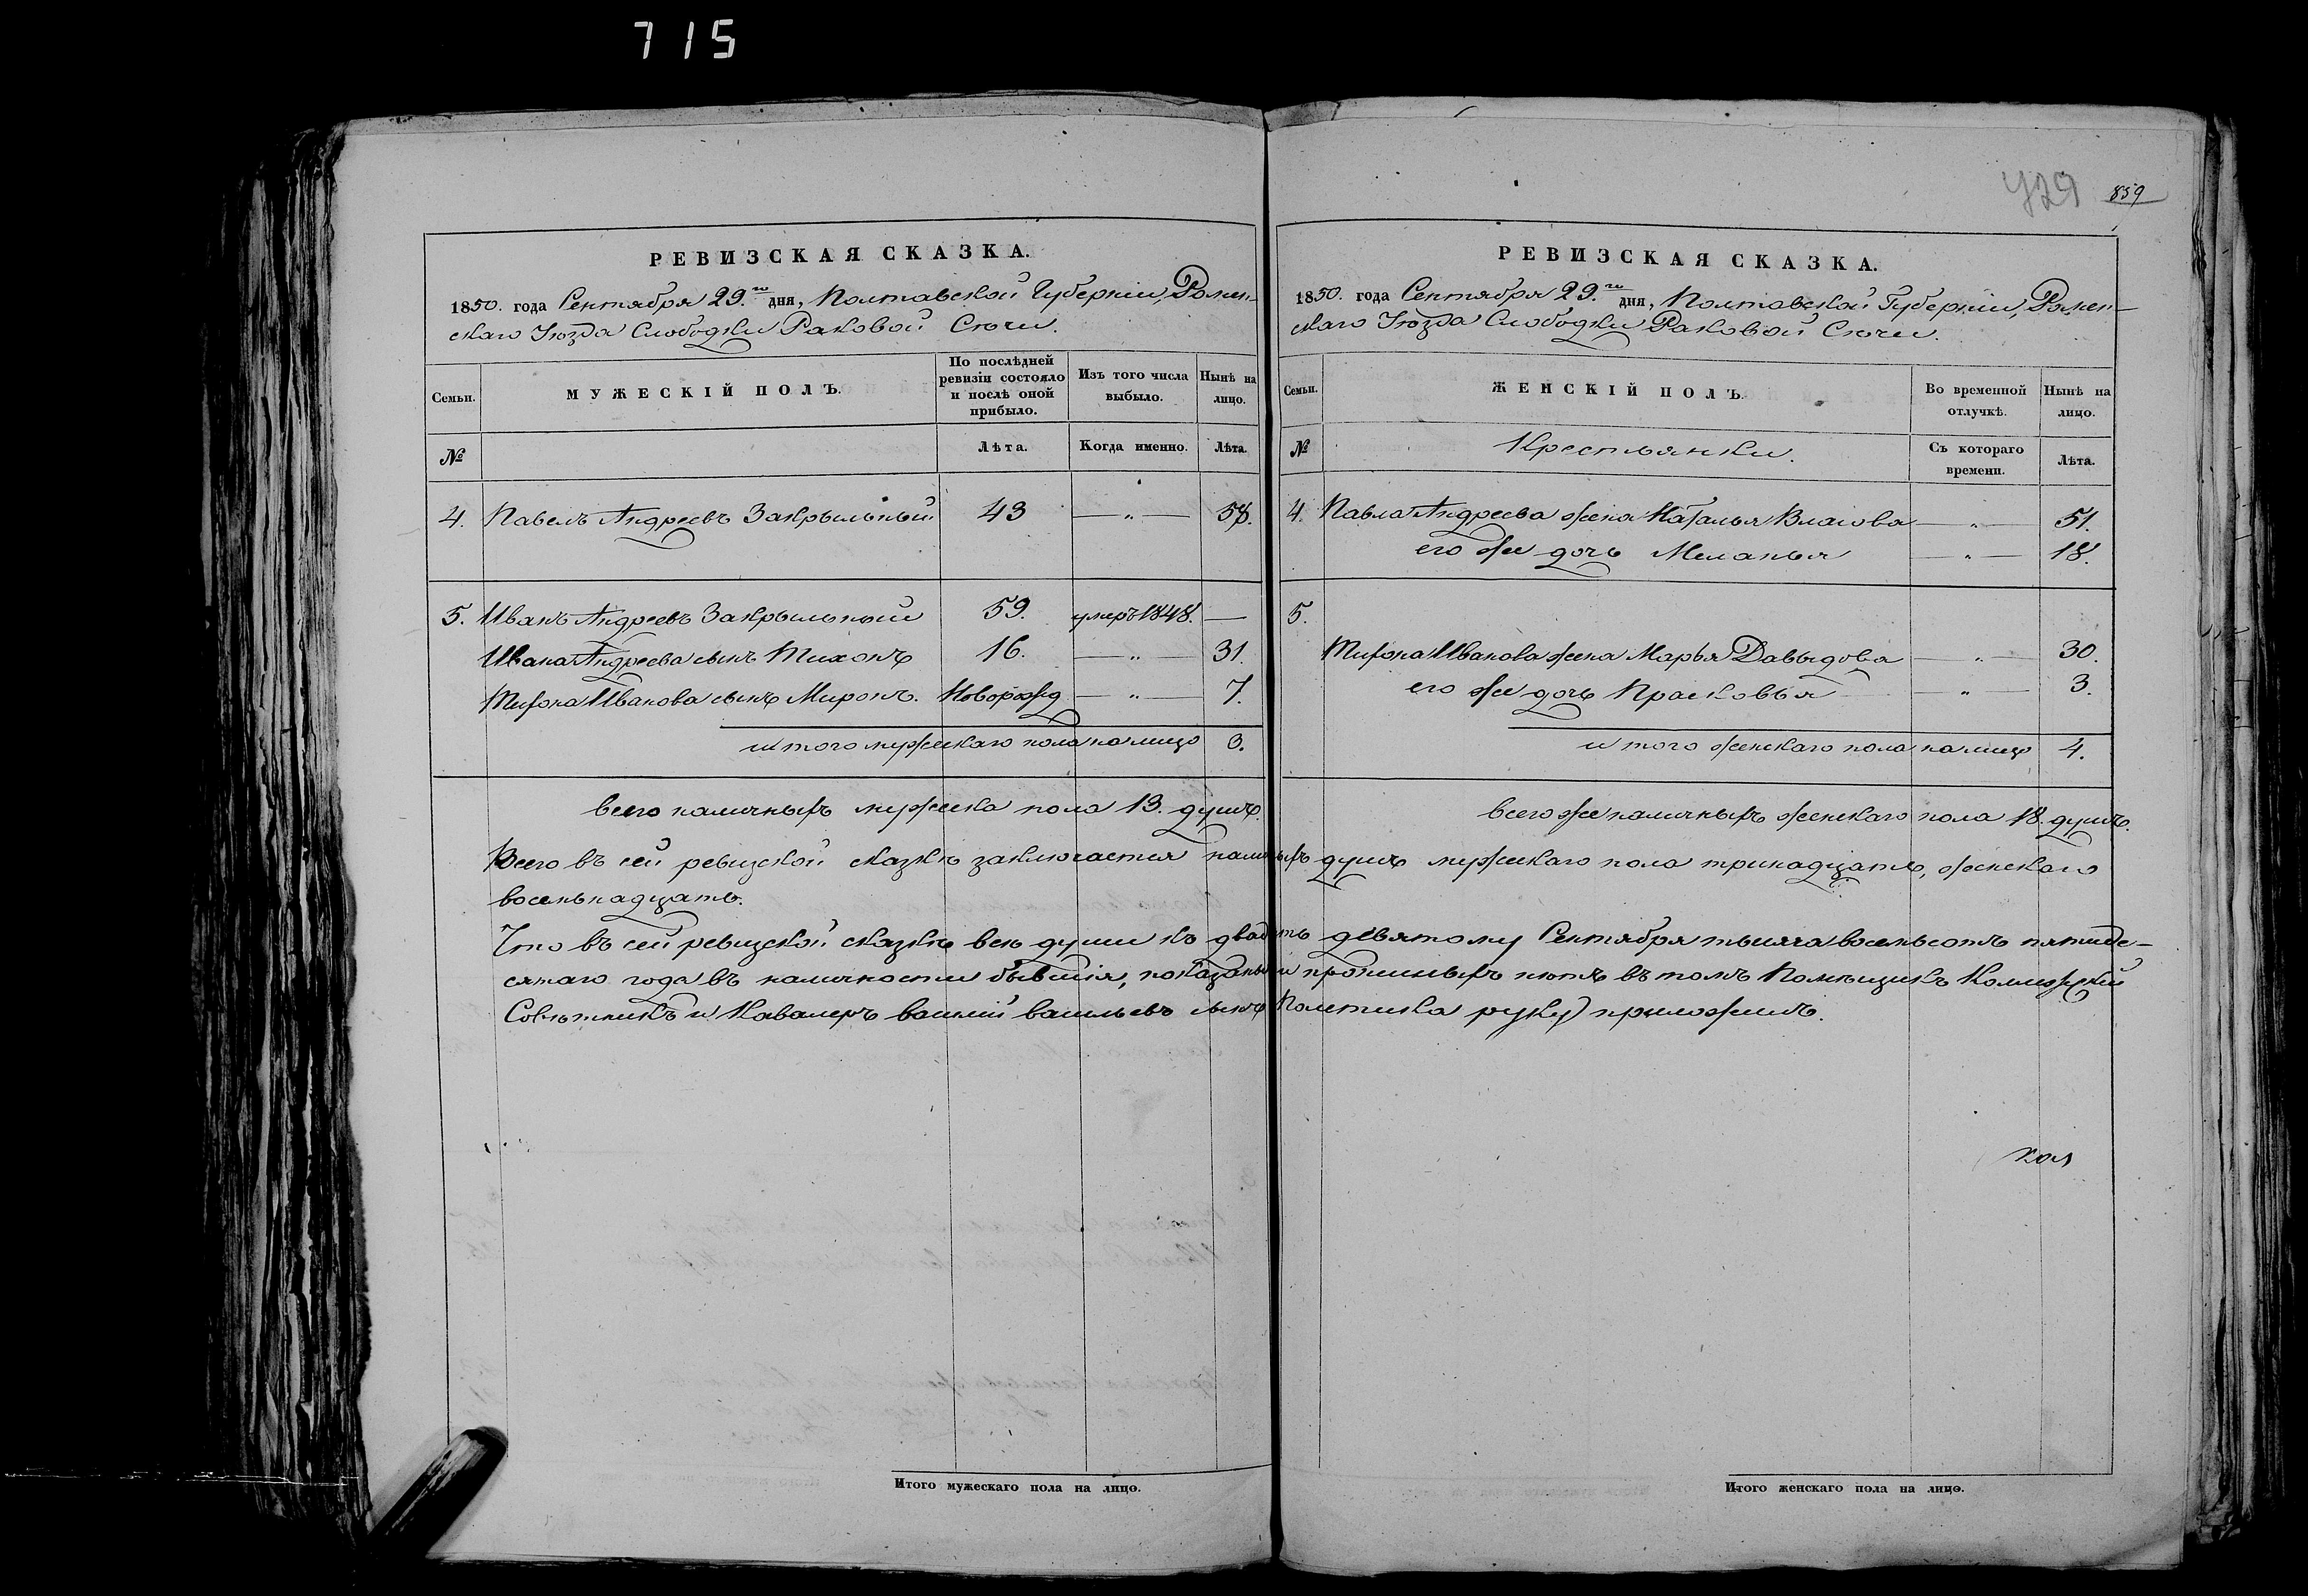 715
429
859
РЕВИЗСКАЯ СКАЗКА.
1850. года Сентября 29.го дня, Полтавской Губернiи, Ромен-
скаго Уѣзда Слободки Раковой Сѣчи.
Семьи.
МУЖЕСКIЙ ПОЛЪ.
По послѣдней ревизiи состояло и послѣ оной прибыло.
Изъ того числа выбыло.
Нынѣ на лицо.
№
Лѣта.
Когда именно.
Лѣта.
4. Павелъ Андреевъ Закрыльный 43 — „ — 58.
5. Иванъ Андреевъ Закрыльный 59. умеръ 1848. —
Ивана Андреева сынъ Тихонъ 16. — „ — 31.
Тихона Иванова сынъ Миронъ. Новорожд — „ — 7.
итого мужескаго пола налицо 3.
всего наличныхъ мужеска пола 13. душъ.
РЕВИЗСКАЯ СКАЗКА.
1850. года Сентября 29.го дня, Полтавской Губернiи, Ромен-
скаго Уѣзда Слободки Раковой Сѣчи.
Семьи.
ЖЕНСКIЙ ПОЛЪ.
Во временной отлучкѣ.
Нынѣ на лицо.
№
Крестьянки.
Съ котораго времени.
Лѣта.
4. Павла Андреева жена Наталья Власова — „ — 51.
его же дочь Меланья — „ — 18.
5.
Тихона Иванова жена Марья Давыдова — „ — 30.
его же дочь Прасковья „ — 3.
итого женскаго пола налицо 4.
всего же наличныхъ женскаго пола 18. душъ.
Всего въ сей ревизской сказкѣ заключается наличныхъ душъ мужескаго пола тринадцать, женскаго
восемьнадцать.
Что въ сей ревизской сказкѣ всѣ души къ двадцать девятому Сентября тысяча восемьсотъ пятиде-
сятаго года въ наличности бывшiя, показаны и прописныхъ нѣтъ въ томъ Помѣщикъ Коллежскiй
Совѣтникъ и Кавалеръ василiй васильевъ сынъ Полетика руку приложилъ.
Итого мужескаго пола на лицо.
Итого женскаго пола на лицо.